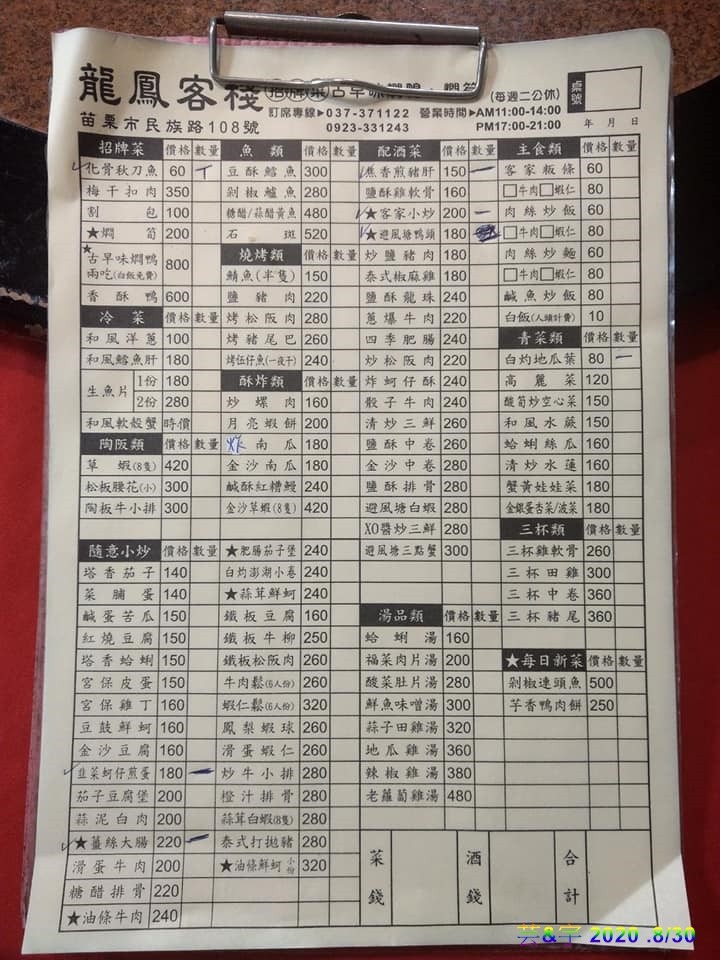 龍鳳客棧 招牌菜 古早味燜鴨、燜筍
(每週二公休)
桌號
苗栗市民族路108號
訂席專線▶037-371122 營業時間▶AM11:00-14:00
0923-331243 PM17:00-21:00
年 月 日
招牌菜 價格 數量
化骨秋刀魚 60 T
梅干扣肉 350
割包 100
★燜筍 200
★古早味燜鴨 兩吃(白飯免費) 800
香酥鴨 600
冷菜 價格 數量
和風洋蔥 100
和風鱈魚肝 180
生魚片 1份 180
2份 280
和風軟殼蟹 時價
陶阪類 價格 數量
草蝦(8隻) 420
松板腰花(小) 300
陶板牛小排 300
魚類 價格 數量
豆酥鱈魚 300
剁椒鱸魚 280
糖醋/蒜醋黃魚 480
石斑 520
燒烤類 價格 數量
鯖魚(半隻) 150
鹽豬肉 220
烤松阪肉 280
烤豬尾巴 260
烤伍仔魚(一夜干) 240
酥炸類 價格 數量
炒螺肉 160
月亮蝦餅 200
炸南瓜 180
金沙南瓜 180
鹹酥紅糟鰻 240
金沙草蝦(8隻) 420
配酒菜 價格 數量
蕉香煎豬肝 150 一
鹽酥雞軟骨 160
★客家小炒 200 一
★避風塘鴨頭 180
炒鹽豬肉 180
泰式椒麻雞 180
鹽酥龍珠 240
蔥爆牛肉 220
四季肥腸 240
炒松阪肉 220
炸蚵仔酥 240
骰子牛肉 240
清炒三鮮 260
鹽酥中卷 260
金沙中卷 280
鹽酥排骨 280
避風塘白蝦 280
XO醬炒三鮮 280
避風塘三點蟹 300
主食類 價格 數量
客家粄條 60
□牛肉□蝦仁 80
肉絲炒飯 60
□牛肉□蝦仁 80
肉絲炒麵 60
□牛肉□蝦仁 80
鹹魚炒飯 80
白飯(人頭計費) 10
青菜類 價格 數量
白灼地瓜葉 80 一
高麗菜 120
酸筍炒空心菜 150
和風水蕨 150
蛤蜊絲瓜 160
清炒水蓮 160
蟹黃娃娃菜 180
金銀蛋杏菜/菠菜 180
三杯類 價格 數量
三杯雞軟骨 260
三杯田雞 300
三杯中卷 360
三杯豬尾 360
★每日新菜 價格 數量
剁椒連頭魚 500
芋香鴨肉餅 250
隨意小炒 價格 數量
塔香茄子 140
菜脯蛋 140
鹹蛋苦瓜 150
紅燒豆腐 150
塔香蛤蜊 150
宮保皮蛋 150
宮保雞丁 160
豆鼓鮮蚵 160
金沙豆腐 160
韭菜蚵仔煎蛋 180 一
茄子豆腐煲 200
蒜泥白肉 200
★薑絲大腸 220 一
滑蛋牛肉 200
糖醋排骨 220
★油條牛肉 240
★肥腸茄子煲 240
白灼澎湖小卷 240
★蒜茸鮮蚵 240
鐵板豆腐 160
鐵板牛柳 250
鐵板松阪肉 260
牛肉鬆(6人份) 260
蝦仁鬆(6人份) 320
鳳梨蝦球 260
滑蛋蝦仁 260
炒牛小排 280
橙汁排骨 280
蒜茸白蝦(8隻) 280
泰式打拋豬 280
★油條鮮蚵 小份 320
湯品類 價格 數量
蛤蜊湯 160
福菜肉片湯 200
酸菜肚片湯 280
鮮魚味噌湯 300
蒜子田雞湯 320
地瓜雞湯 360
辣椒雞湯 380
老蘿蔔雞湯 480
菜錢
酒錢
合計
芸&宇 2020 .8/30